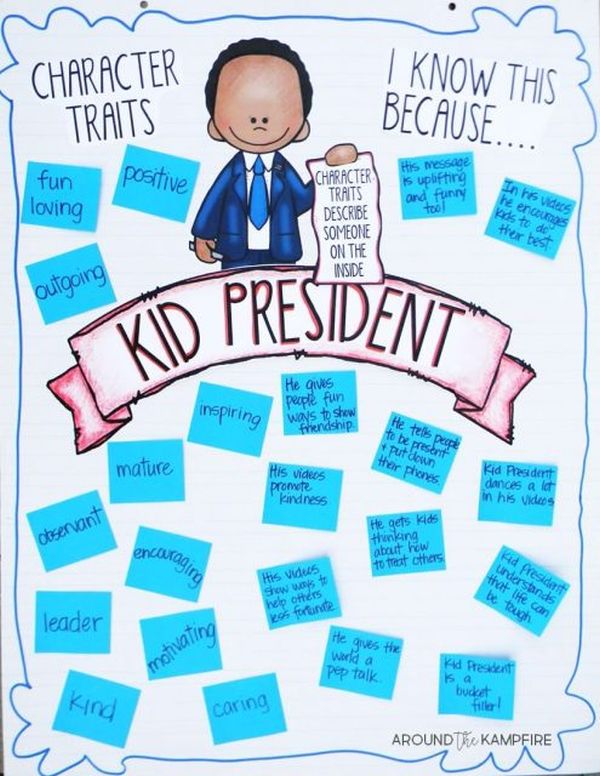 CHARACTER
TRAITS
I KNOW THIS
BECAUSE....
CHARACTER
TRAITS
DESCRIBE
SOMEONE
ON THE
INSIDE
KID PRESIDENT
fun
loving
positive
outgoing
inspiring
mature
observant
encouraging
leader
motivating
kind
caring
His message
is uplifting
and funny
too!
In his videos
he encourages
kids to do
their best
He gives
people fun
ways to show
friendship.
He tells people
to be present
+ put down
their phones.
His videos
promote
kindness
Kid President
dances a lot
in his videos
He gets kids
thinking
about how
to treat others.
His videos
show ways to
help others
less fortunate.
Kid President
understands
that life can
be tough
He gives the
world a
pep talk.
Kid President
is a
bucket
filler!
AROUND the KAMPFIRE